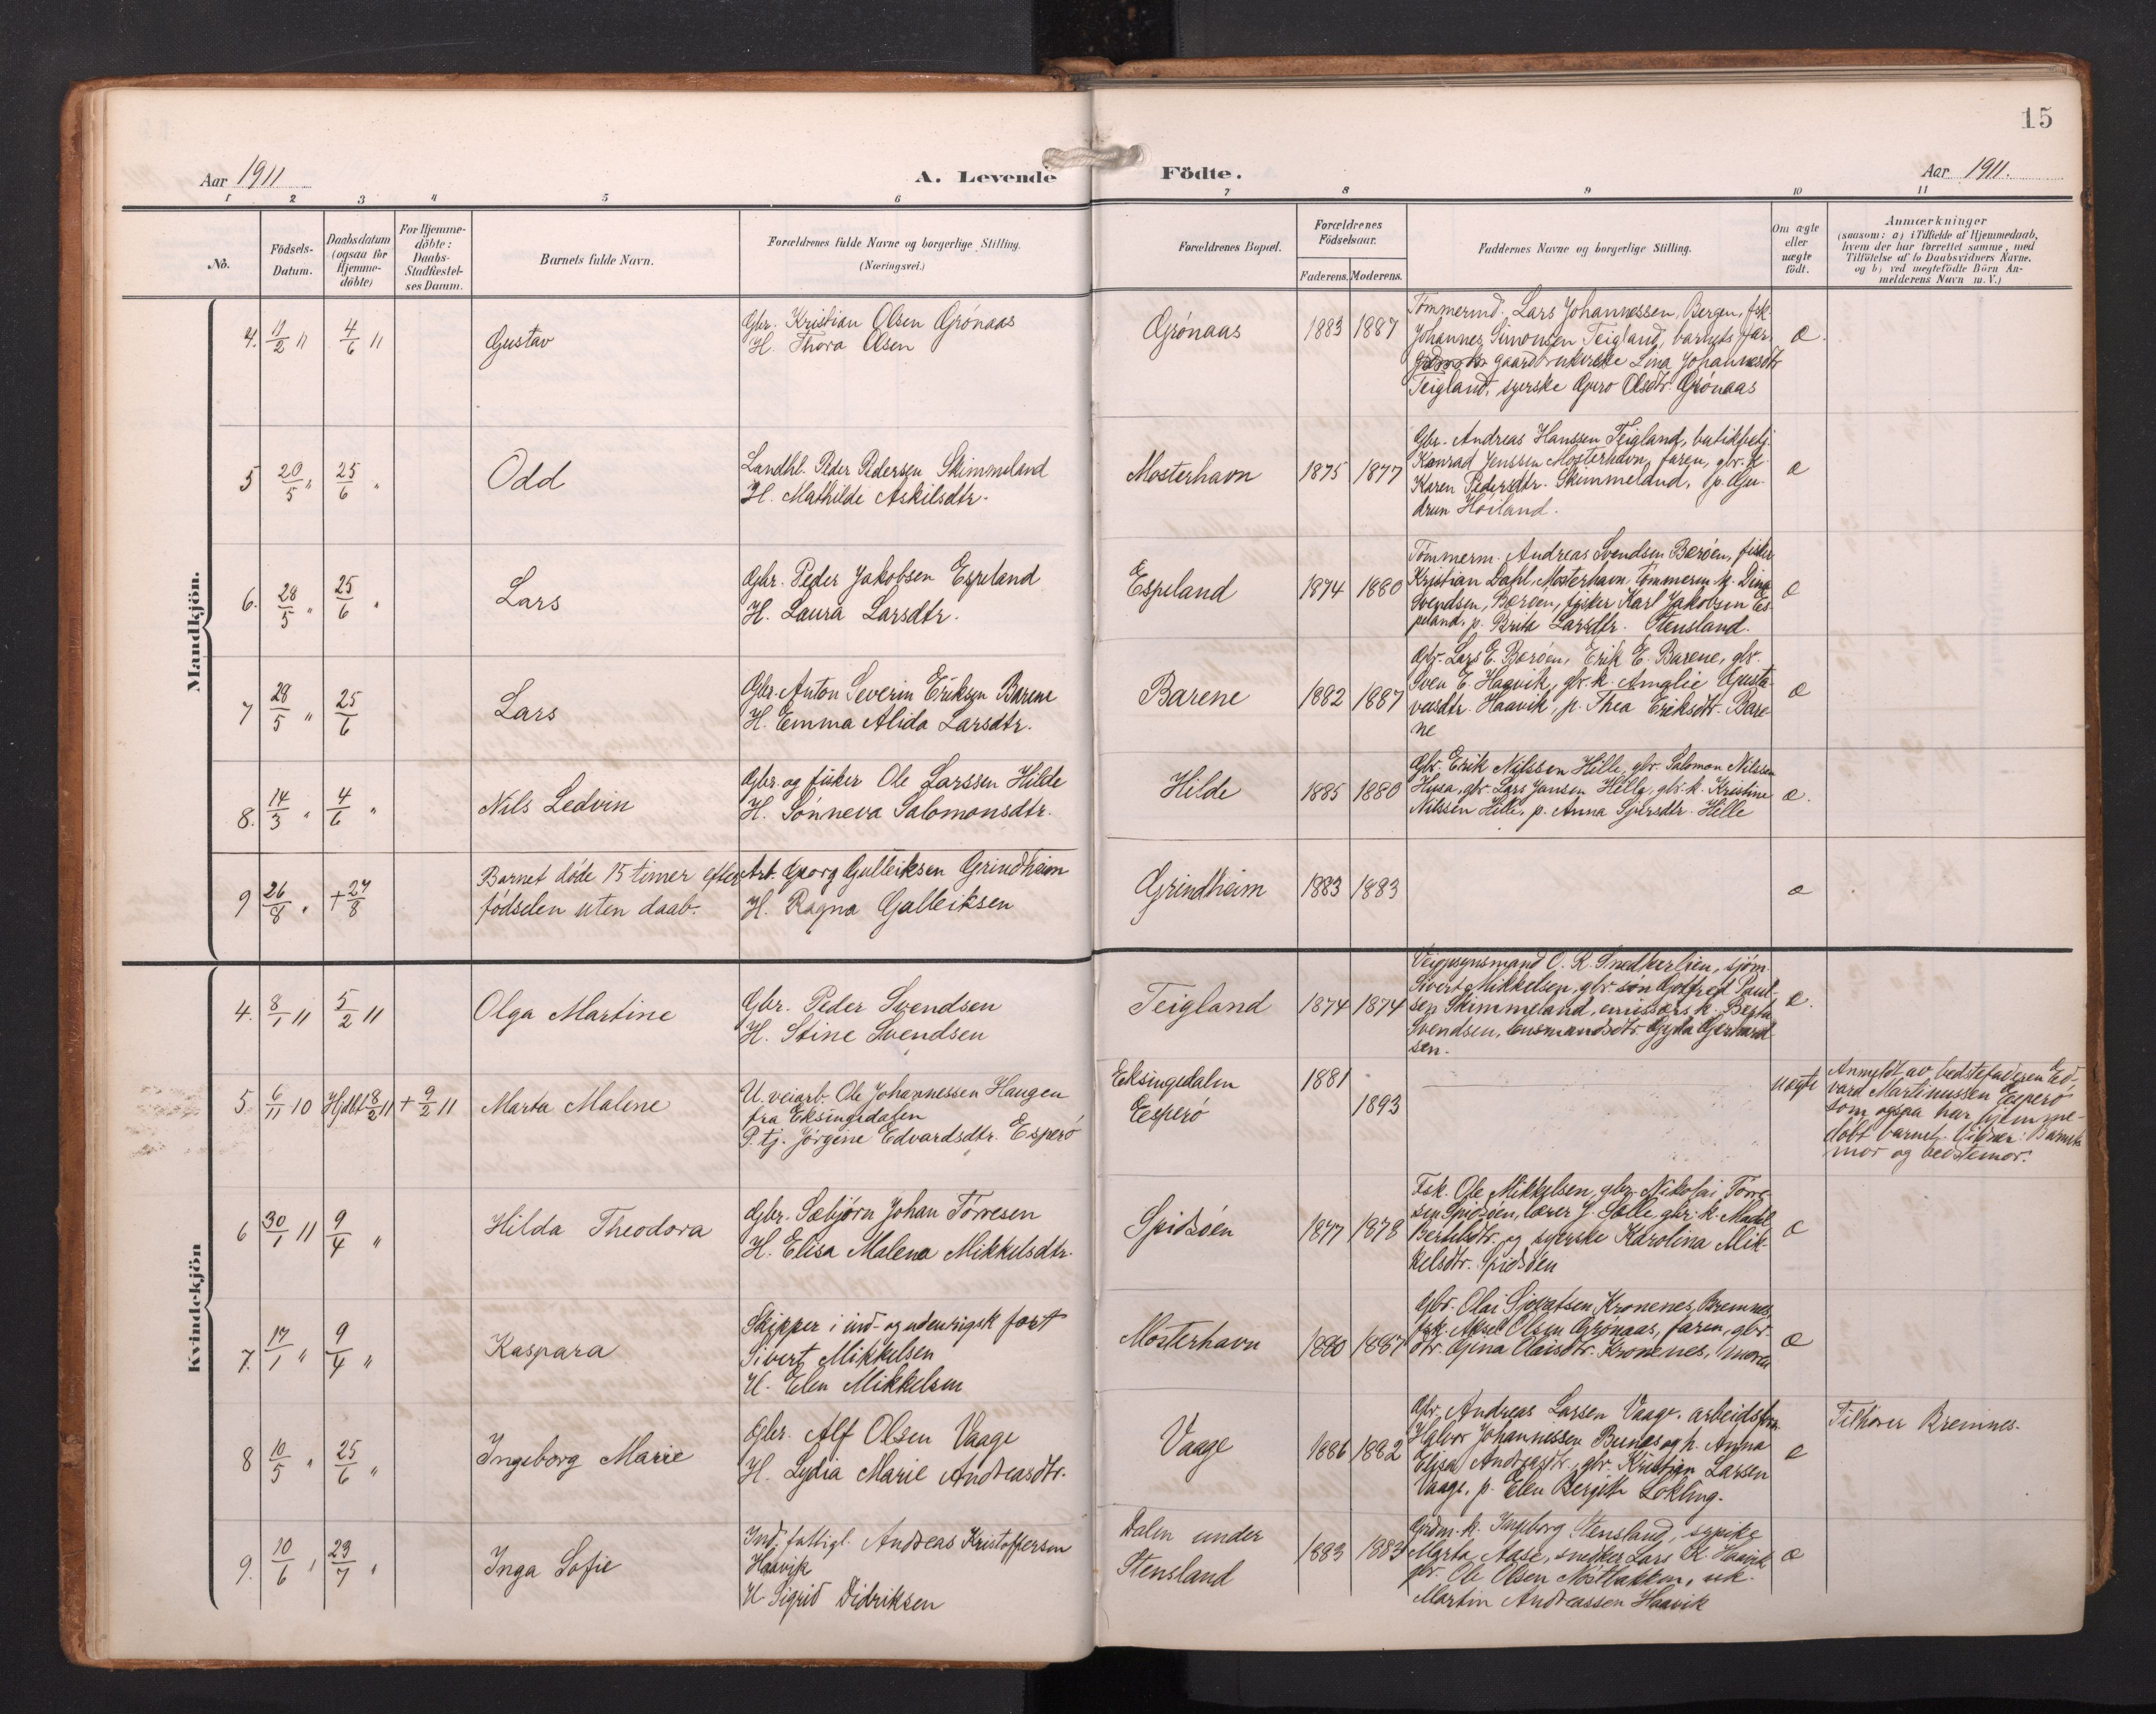 15
Aar 1911
A. Levende
Födte.
Aar 1911.
1 2 3 4 5 6 7 8 9 10 11
No.
Födsels-
Datum.
Daabsdatum
(ogsaa for
Hjemme-
döbte)
For Hjemme-
döbte:
Daabs-
Stadfæstel-
ses Datum.
Barnets fulde Navn.
Forældrenes fulde Navne og borgerlige Stilling.
(Næringsvei.)
Forældrenes Bopæl.
Forældrenes
Födselsaar.
Faderens. Moderens.
Faddernes Navne og borgerlige Stilling.
Om ægte
eller
uægte
födt.
Anmærkninger
(saasom: a) i Tilfælde af Hjemmedaab,
hvem der har forrettet samme, med
Tilföielse af to Daabsvidners Navne,
og b) ved uægtefödte Börn An-
melderens Navn m. V.)
Mandkjön.
4. 11/2 11 4/6 11
Gustav
Gbr. Kristian Olsen Grönaas
H. Thora Olsen
Grönaas
1883 1887
Tömmermd. Lars Johannessen, Bergen, fsk.
Johannes Simonsen Teigland, barnets far.
gaardbrukerske Lina Johannesdtr
Teigland, syerske Guro Olsdtr. Grönaas
æ.
5 20/5 " 25/6 "
Odd
Landhl. Peder Pedersen Skimmeland
H. Mathilde Askilsdtr.
Mosterhavn
1875 1877
Gbr. Andreas Hanssen Teigland, butikbetj.
Konrad Jenssen Mosterhavn, faren, gbr. k.
Karen Pedersdtr. Skimmeland, p. Gu-
drun Höiland.
æ
6. 28/5 " 25/6 "
Lars
Gbr. Peder Jakobsen Espeland
H. Laura Larsdtr.
Espeland
1874 1880
Tömmerm. Andreas Svendsen Beröen, fisker
Kristian Dahl, Mosterhavn, tömmerm. k. Dina
Svendsen, Beröen, fisker Karl Jakobsen Es-
peland, p. Brita Larsdtr. Stensland.
æ
7 28/5 " 25/6
Lars
Gbr. Anton Severin Eriksen Barene
H. Emma Alida Larsdtr.
Barene
1882 1887
Gbr. Lars E. Beröen, Erik E. Barene, gbr.
Sven E. Haavik, gbr. k. Amalie Gusta-
vusdtr. Haavik, p. Thea Eriksdt. Bare-
ne
æ
8. 14/3 " 4/6 "
Nils Ledvin
Gbr. og fisker Ole Larssen Hilde
H. Sönneva Salomonsdtr.
Hilde
1885 1880
Gbr. Erik Nilssen Hille, gbr. Salomon Nilssen
Husa, gbr. Lars Jansen Hille, gbr. k. Kristine
Nilssen Hille, p. Anna Sjursdtr. Hille
æ.
9 26/8 " + 27/8
Barnet döde 15 timer efter
födselen uten daab.
Arb. Georg Gulleiksen Grindheim
H. Ragna Gulleiksen
Grindheim
1883 1883
æ
Kvindekjön
4. 8/1 11 5/2 11
Olga Martine
Gbr. Peder Svendsen
H. Stine Svendsen
Teigland
1874 1874
Veiopsynsmand O. R. Snedkerlien, sjöm.
Sivert Mikkelsen, gbr. sön Gotfred Paul-
sen Skimmeland, emissærs k. Berta
Svendsen, lensmandsdtr. Gyda Gerhard-
sen.
æ.
5. 6/11 10 Hjdbt 18/2 11 + 9/2 11
Marta Malene
U. veiarb. Ole Johannessen Haugen
fra Eksingedalen
P. tj. Jörgine Edvardsdtr. Esperö
Eksingedalen
Esperö
1881
1893
uægte
Anmeldt av bedstefaderen Ed-
vard Martinussen Esperö
som ogsaa har hjemme-
döbt barnet. Vidner: Barnets
mor og bedstemor.
6 30/1 11 9/4 "
Hilda Theodora
Gbr. Sæbjörn Johan Törresen
H. Elisa Malena Mikkelsdtr.
Spidsöen
1877 1878
Fsk. Ole Mikkelsen, gbr. Nikolai Törre-
sen Spidsöen, lærer J. Sælle, gbr. k.
Bertelsdtr. og syerske Karolina Mik-
kelsdtr. Spidsöen
æ
7. 17/1 " 9/4 "
Kaspara
Skipper i ind- og udenrigsk fart
Sivert Mikkelsen
H. Elen Mikkelsen
Mosterhavn
1880 1887
Gbr. Olai Sjovatsen Kronenes, Bremnes,
fsk. Aksel Olsen Grönaas, faren, gbr.
dtr. Gjina Olaisdtr. Kronenes, moren
æ
8 10/5 " 25/6 "
Ingeborg Marie
Gbr. Alf Olsen Vaage
H. Lydia Marie Andreasdtr.
Vaage
1886 1882
Gbr. Andreas Larsen Vaage, arbeidsfor.
Halvor Johannessen Bunes og h. Anna
Elisa Andreasdtr., gbr. Kristian Larsen
Vaage, p. Elen Bergitte Lökling.
æ
Tilhörer Bremnes.
9. 10/6 " 23/7 "
Inga Sofie
Ind. fattigl. Andreas Kristoffersen
Haavik
H. Sigrid Didriksen
Dalen under
Stensland
1883 1883
Grdm. k. Ingeborg Stensland, sypike
Marta Aase, snedker Lars K. Haavik
gbr. Ole Olsen Nöstbakken, uk.
Martin Andreassen Haavik
æ